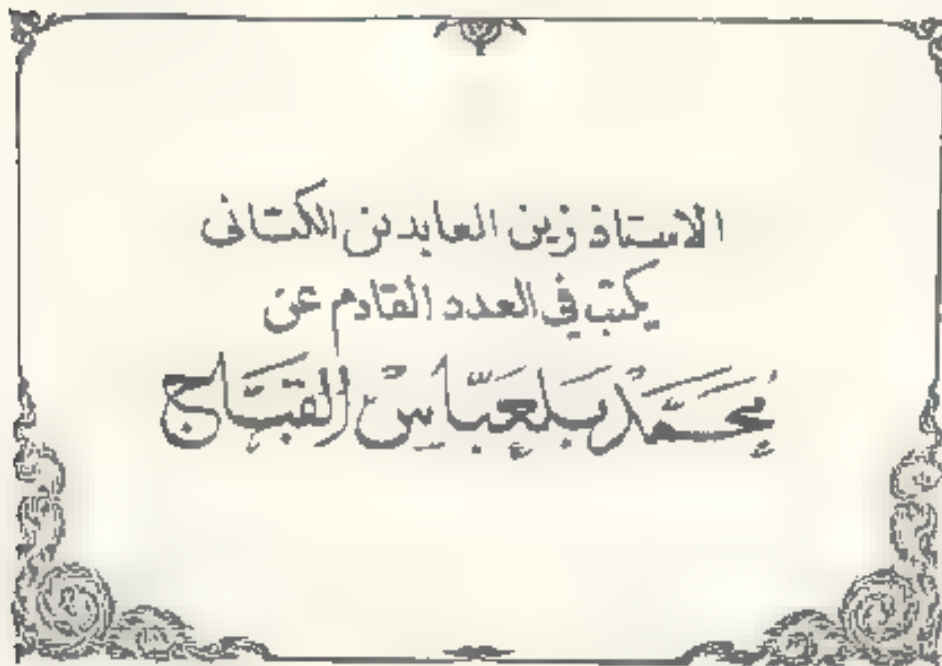 الاستاذ زين العابدين الكتاني
يكتب في العدد القادم عن
محمد بلعباس القباج